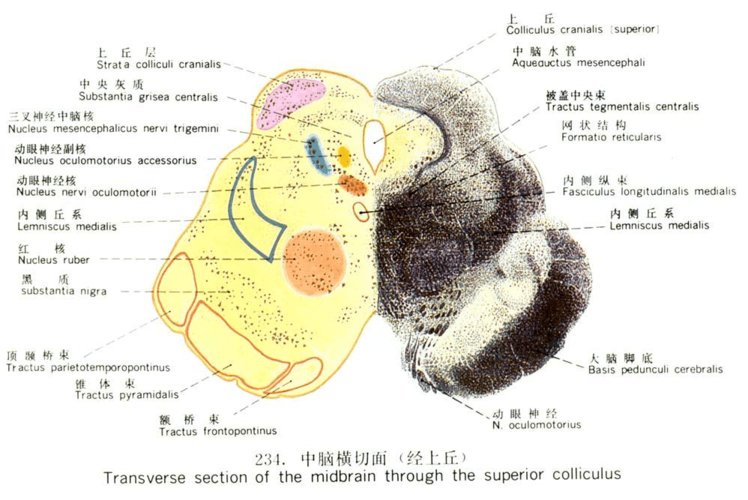 上丘层
Strata colliculi cranialis
中央灰质
Substantia grisea centralis
三叉神经中脑核
Nucleus mesencephalicus nervi trigemini
动眼神经副核
Nucleus oculomotorius accessorius
动眼神经核
Nucleus nervi oculomotorii
内侧丘系
Lemniscus medialis
红核
Nucleus ruber
黑质
substantia nigra
顶颞桥束
Tractus parietotemporopontinus
锥体束
Tractus pyramidalis
额桥束
Tractus frontopontinus
上丘
Colliculus cranialis (superior)
中脑水管
Aqueductus mesencephali
被盖中央束
Tractus tegmentalis centralis
网状结构
Formatio reticularis
内侧纵束
Fasciculus longitudinalis medialis
内侧丘系
Lemniscus medialis
大脑脚底
Basis pedunculi cerebralis
动眼神经
N. oculomotorius
234. 中脑横切面(经上丘)
Transverse section of the midbrain through the superior colliculus